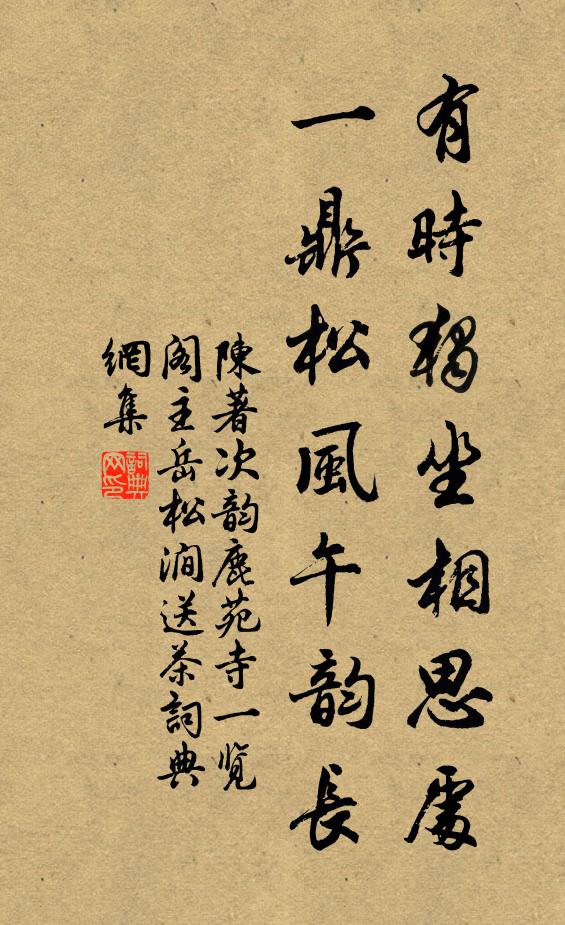 有時獨坐相思處
一鼎松風午韵長
陳著次韵鹿苑寺一覽
閣主岳松澗送茶詞典
網集
詞典网印